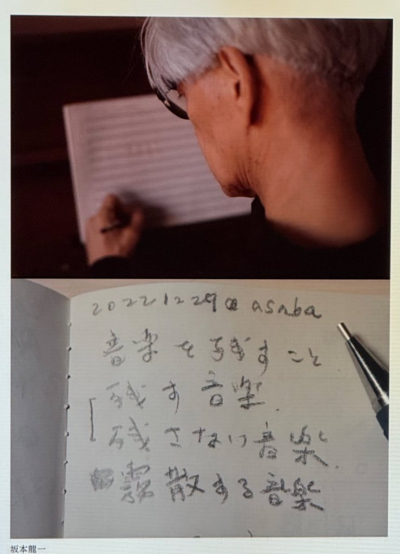 20221229@asaba
音楽を残すこと
残す音楽
残さない音楽
霧散する音楽
坂本龍一